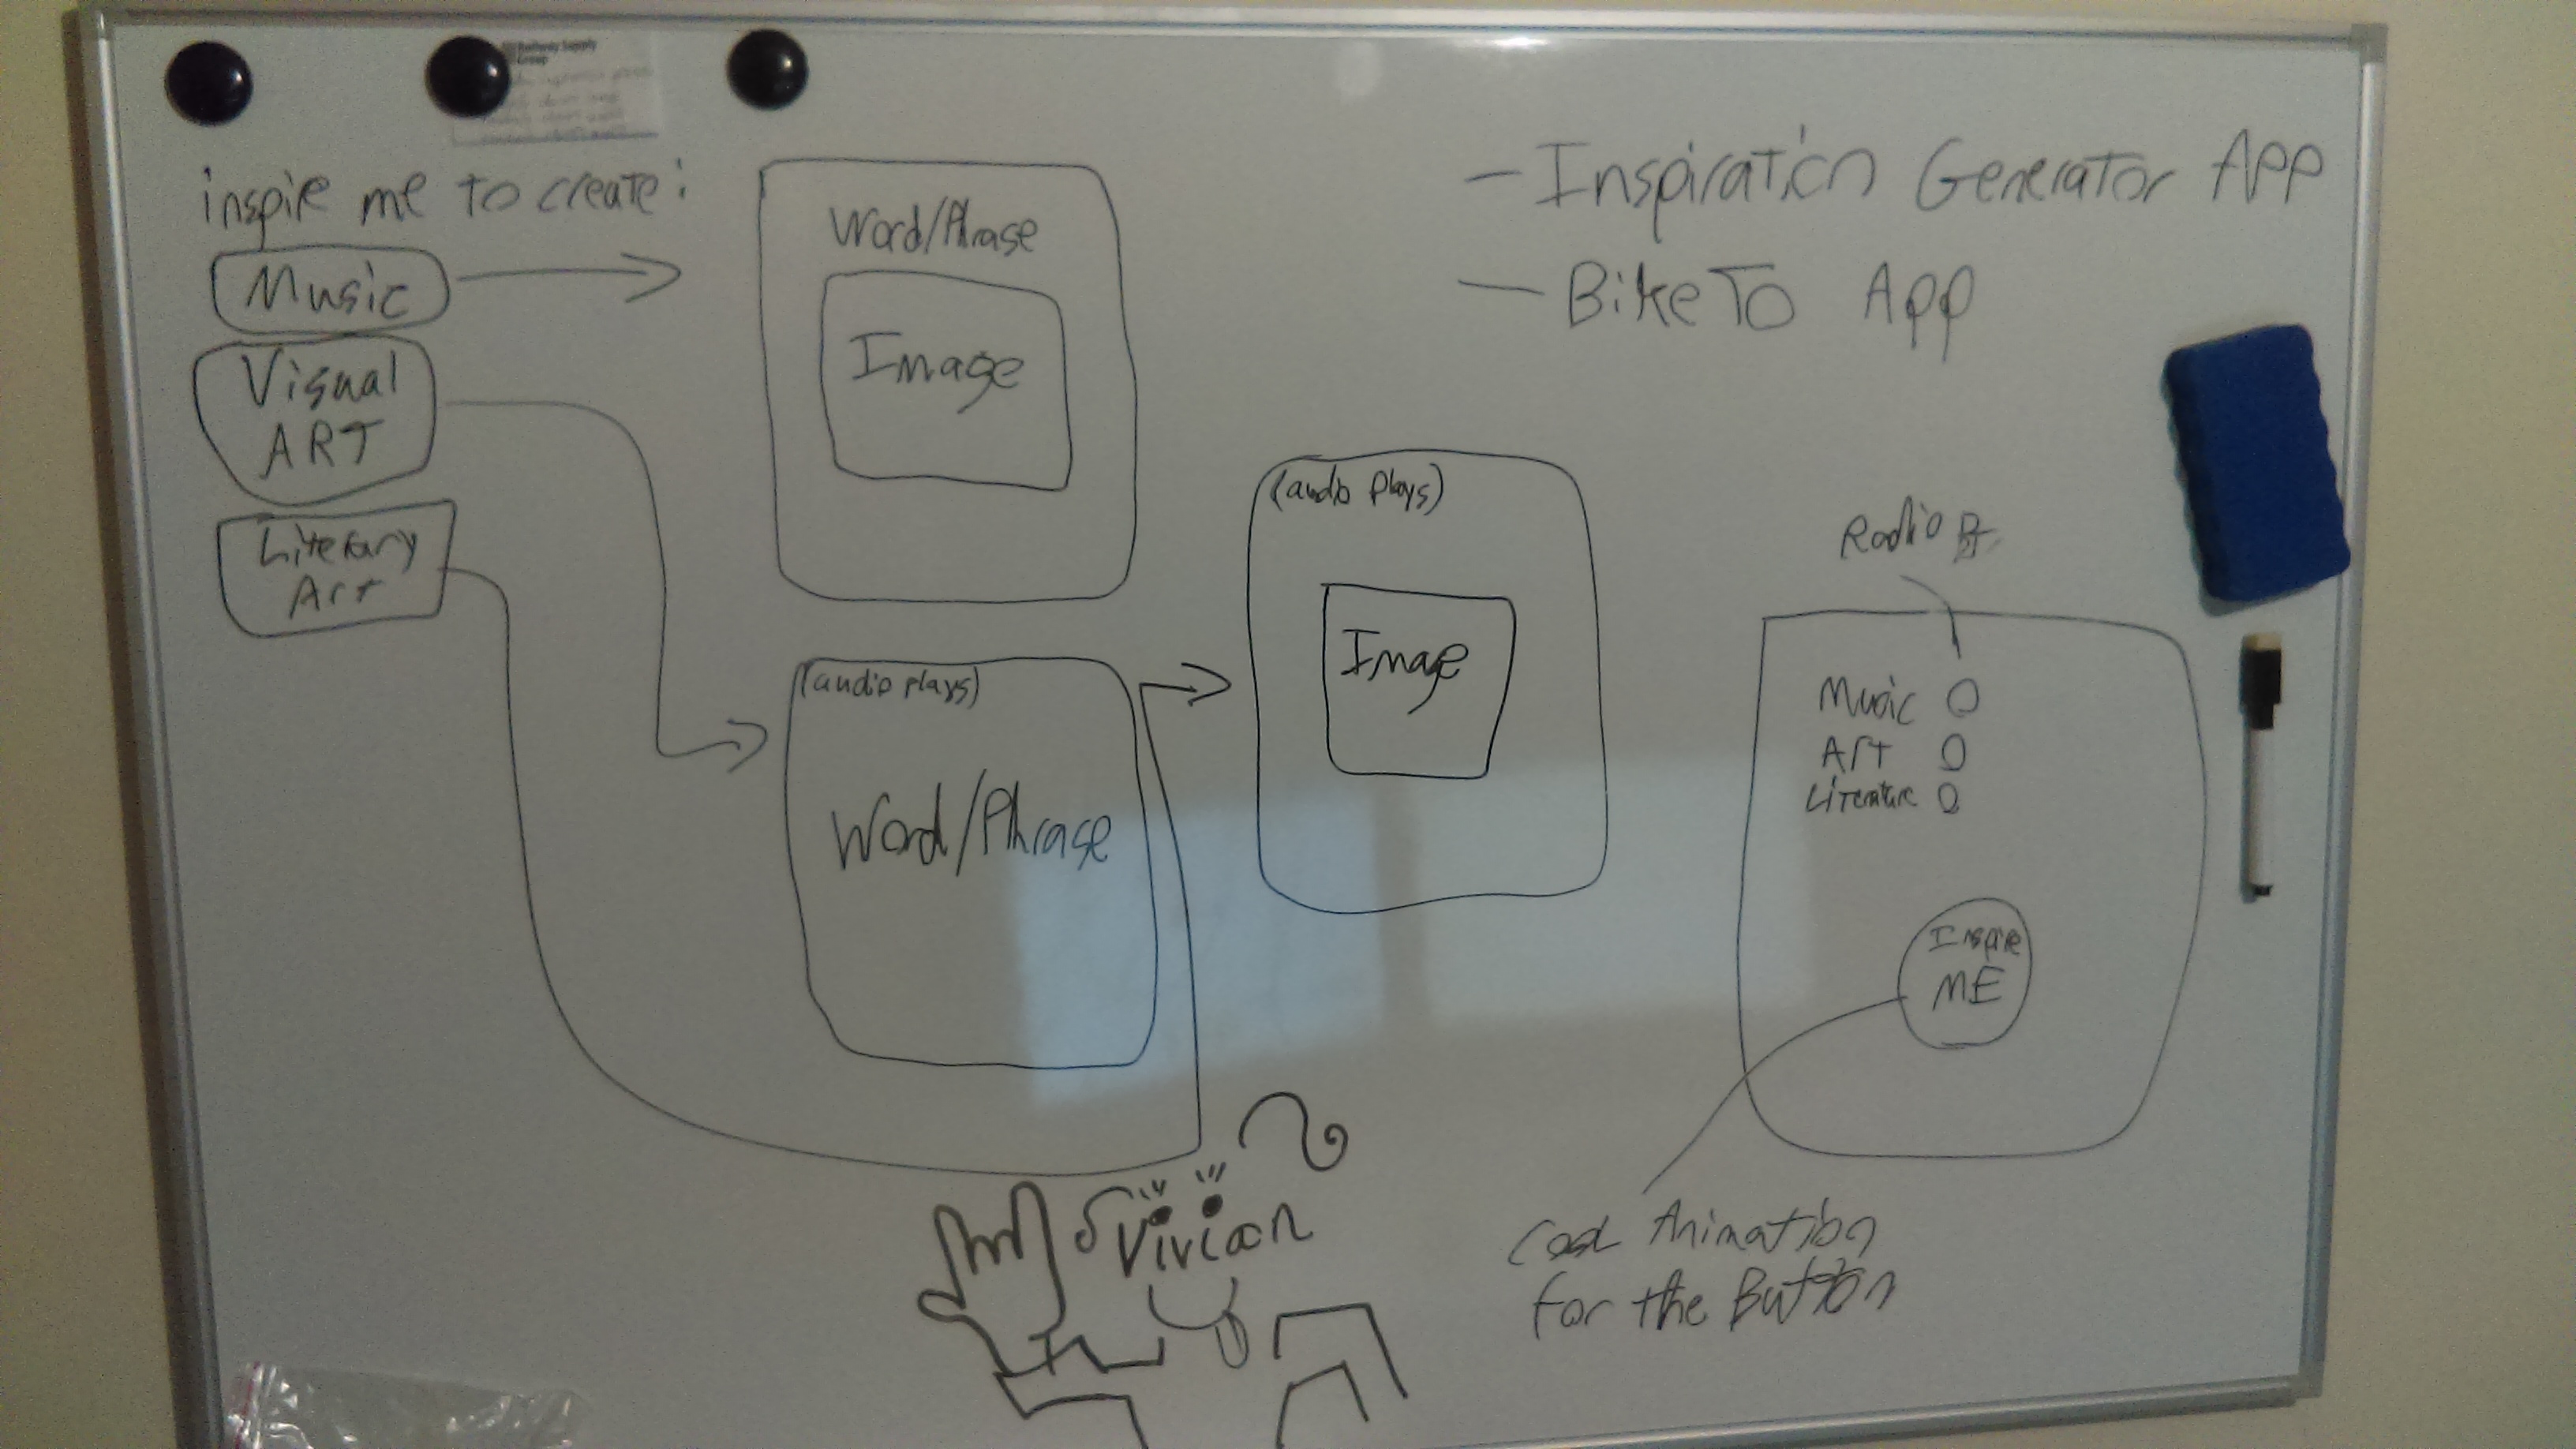 Railway Supply
Group
inspire me to create:
Music
Visual
ART
Literary
Art
Word/Phrase
Image
(audio plays)
Word/Phrase
(audio plays)
Image
- Inspiration Generator App
- BikeTo App
Radio
Music
Art
Literature
Inspire
ME
Cool Animation
for the Button
Vivian